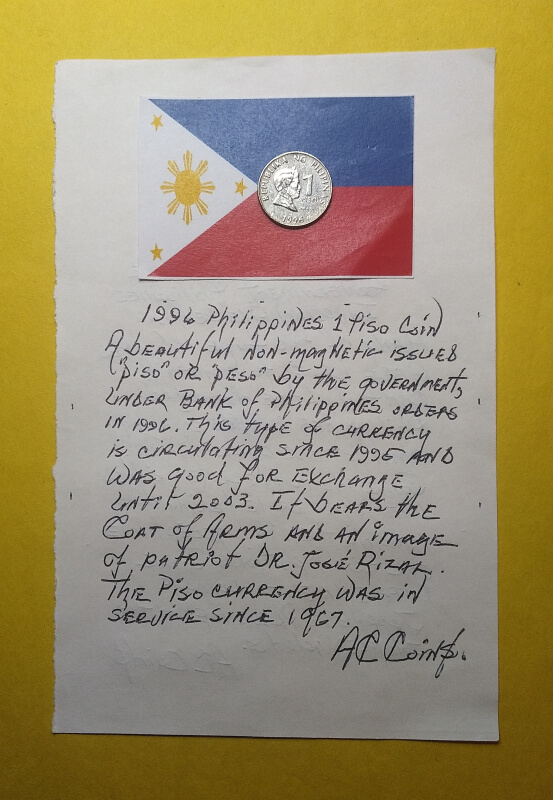 REPUBLIKA NG PILIPINAS
1
1996
1996 Philippines 1 Piso Coin
A beautiful non-magnetic issued
"piso" or "peso" by the government,
under Bank of Philippines orders
in 1996. This type of currency
is circulating since 1995 and
was good for exchange
until 2003. It bears the
Coat of Arms and an image
of patriot Dr. José Rizal.
The Piso currency was in
service since 1967.
AC Coins.